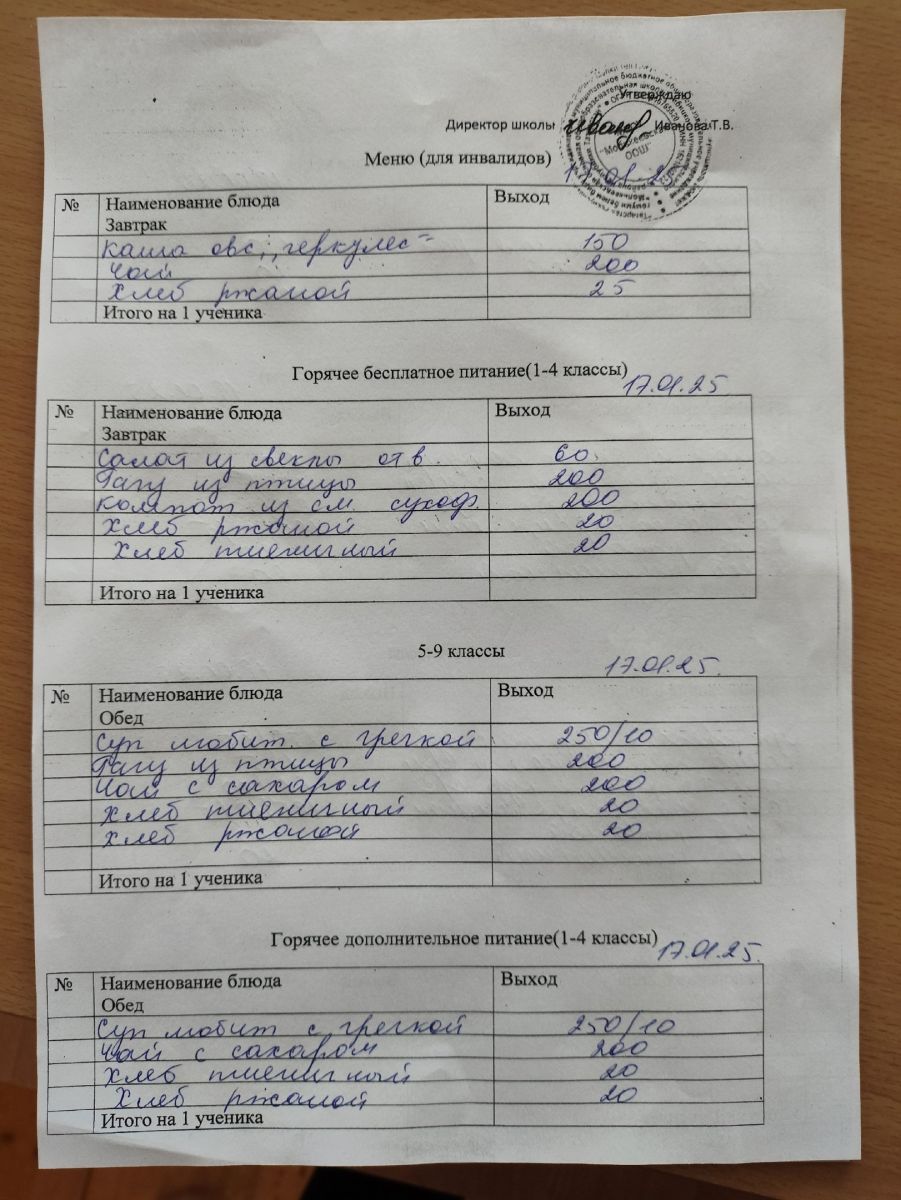 Утверждаю
Директор школы Иванова Т.В.
Меню (для инвалидов)
№ Наименование блюда Выход
Завтрак
Каша овс. „геркулес" 150
Чай 200
Хлеб ржаной 25
Итого на 1 ученика
Горячее бесплатное питание(1-4 классы)
17.01.25
№ Наименование блюда Выход
Завтрак
Салат из свеклы отв. 60
Рагу из птицы 200
Компот из см. сухоф. 200
Хлеб ржаной 20
Хлеб пшеничный 20
Итого на 1 ученика
5-9 классы
17.01.25.
№ Наименование блюда Выход
Обед
Суп любит. с гречкой 250/10
Рагу из птицы 200
Чай с сахаром 200
Хлеб пшеничный 20
Хлеб ржаной 20
Итого на 1 ученика
Горячее дополнительное питание(1-4 классы)
17.01.25.
№ Наименование блюда Выход
Обед
Суп любит с гречкой 250/10
Чай с сахаром 200
Хлеб пшеничный 20
Хлеб ржаной 20
Итого на 1 ученика